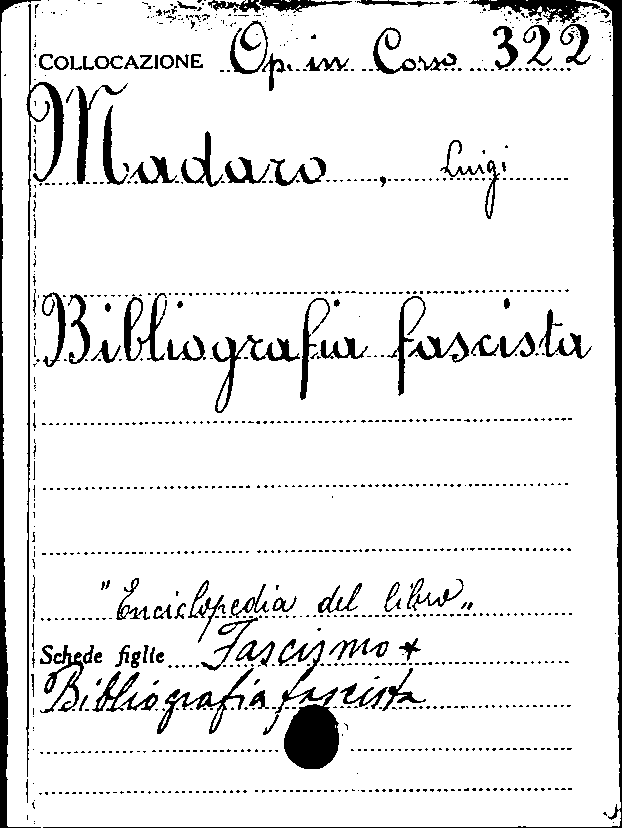 COLLOCAZIONE Op. in Corso 322
Madaro, Luigi
Bibliografia fascista
"Enciclopedia del libro„
Schede figlie Fascismo *
Bibliografia fascista